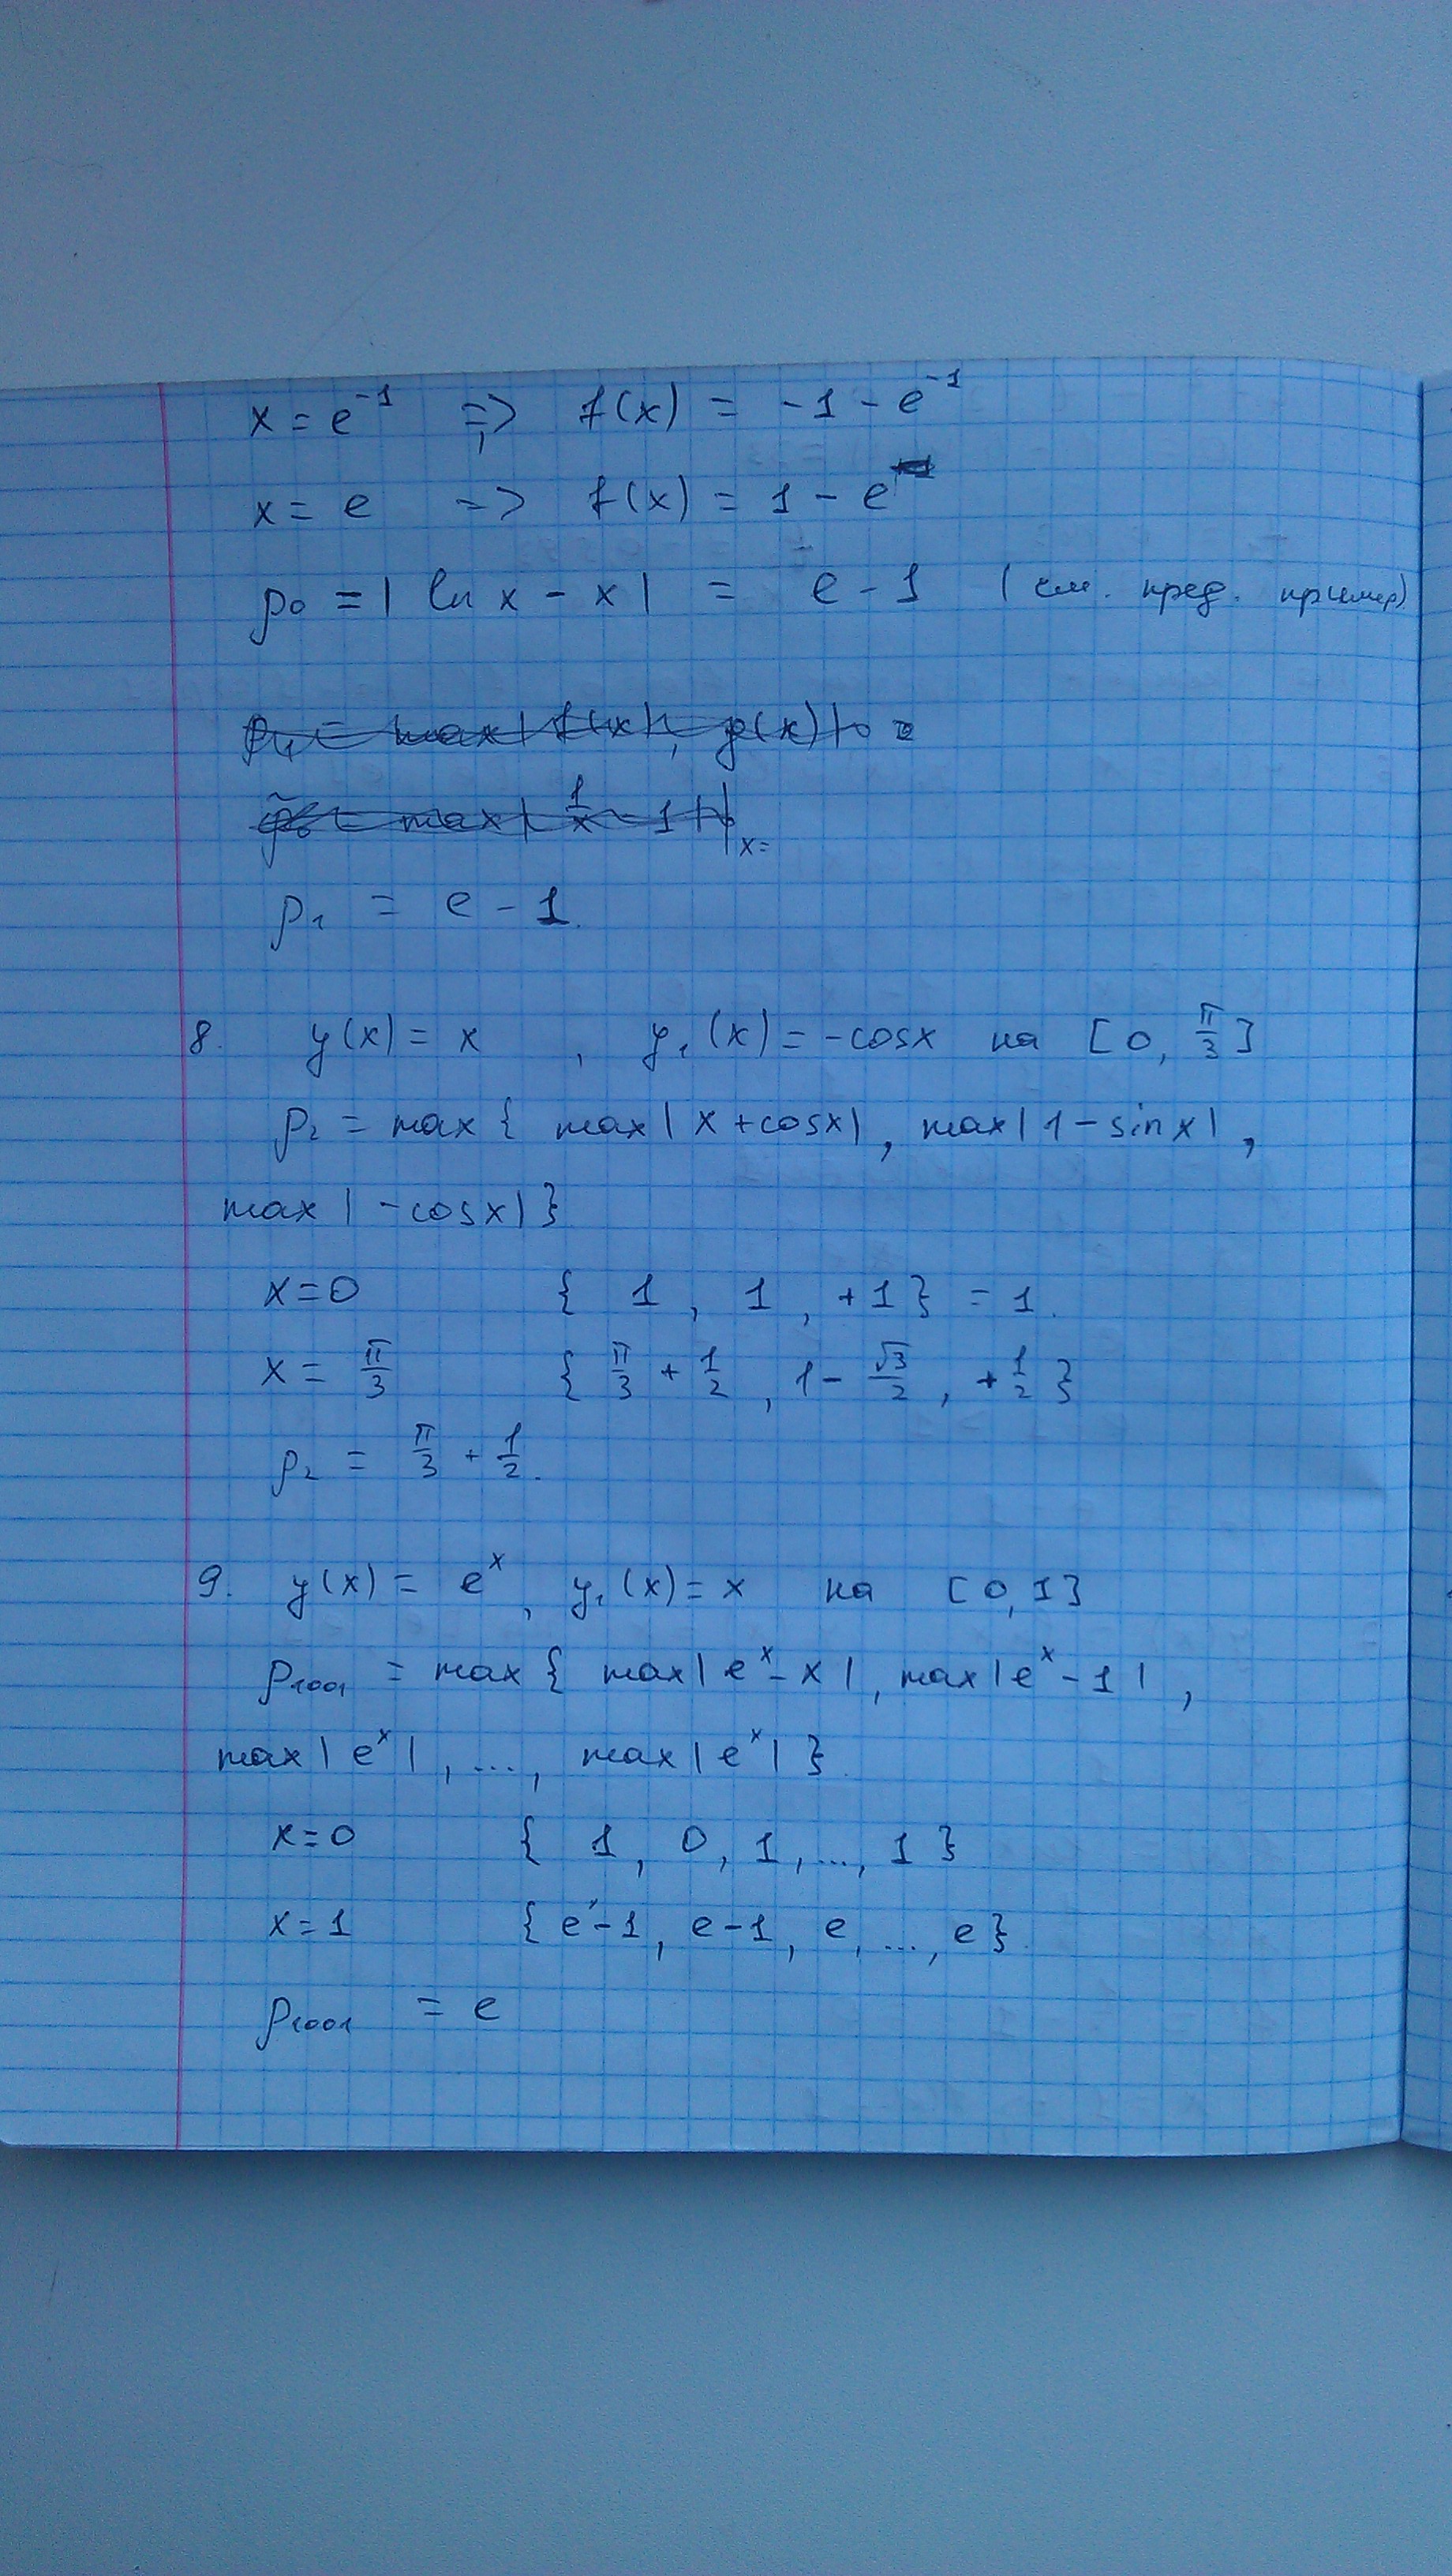 x = e⁻¹ => f(x) = -1 - e⁻¹
x = e => f(x) = 1 - e
ρ₀ = | ln x - x | = e - 1 (см. пред. пример)
ρ₁ = max | f(x), g(x) |
ρ₀ = max | 1/x - 1 | |x=
ρ₁ = e - 1.
8. y(x) = x , y₁(x) = -cosx на [0, π/3]
ρ₂ = max { max | x + cosx | , max | 1 - sin x | ,
max | -cosx | }
x = 0 { 1 , 1 , +1 } = 1.
x = π/3 { π/3 + 1/2 , 1 - √3/2 , +1/2 }
ρ₂ = π/3 + 1/2.
9. y(x) = eˣ , y₁(x) = x на [0, 1]
ρ₁₀₀₁ = max { max | eˣ - x | , max | eˣ - 1 | ,
max | eˣ | , ..., max | eˣ | }.
x = 0 { 1 , 0 , 1 , ..., 1 }
x = 1 { e - 1 , e - 1 , e , ..., e }.
ρ₁₀₀₁ = e